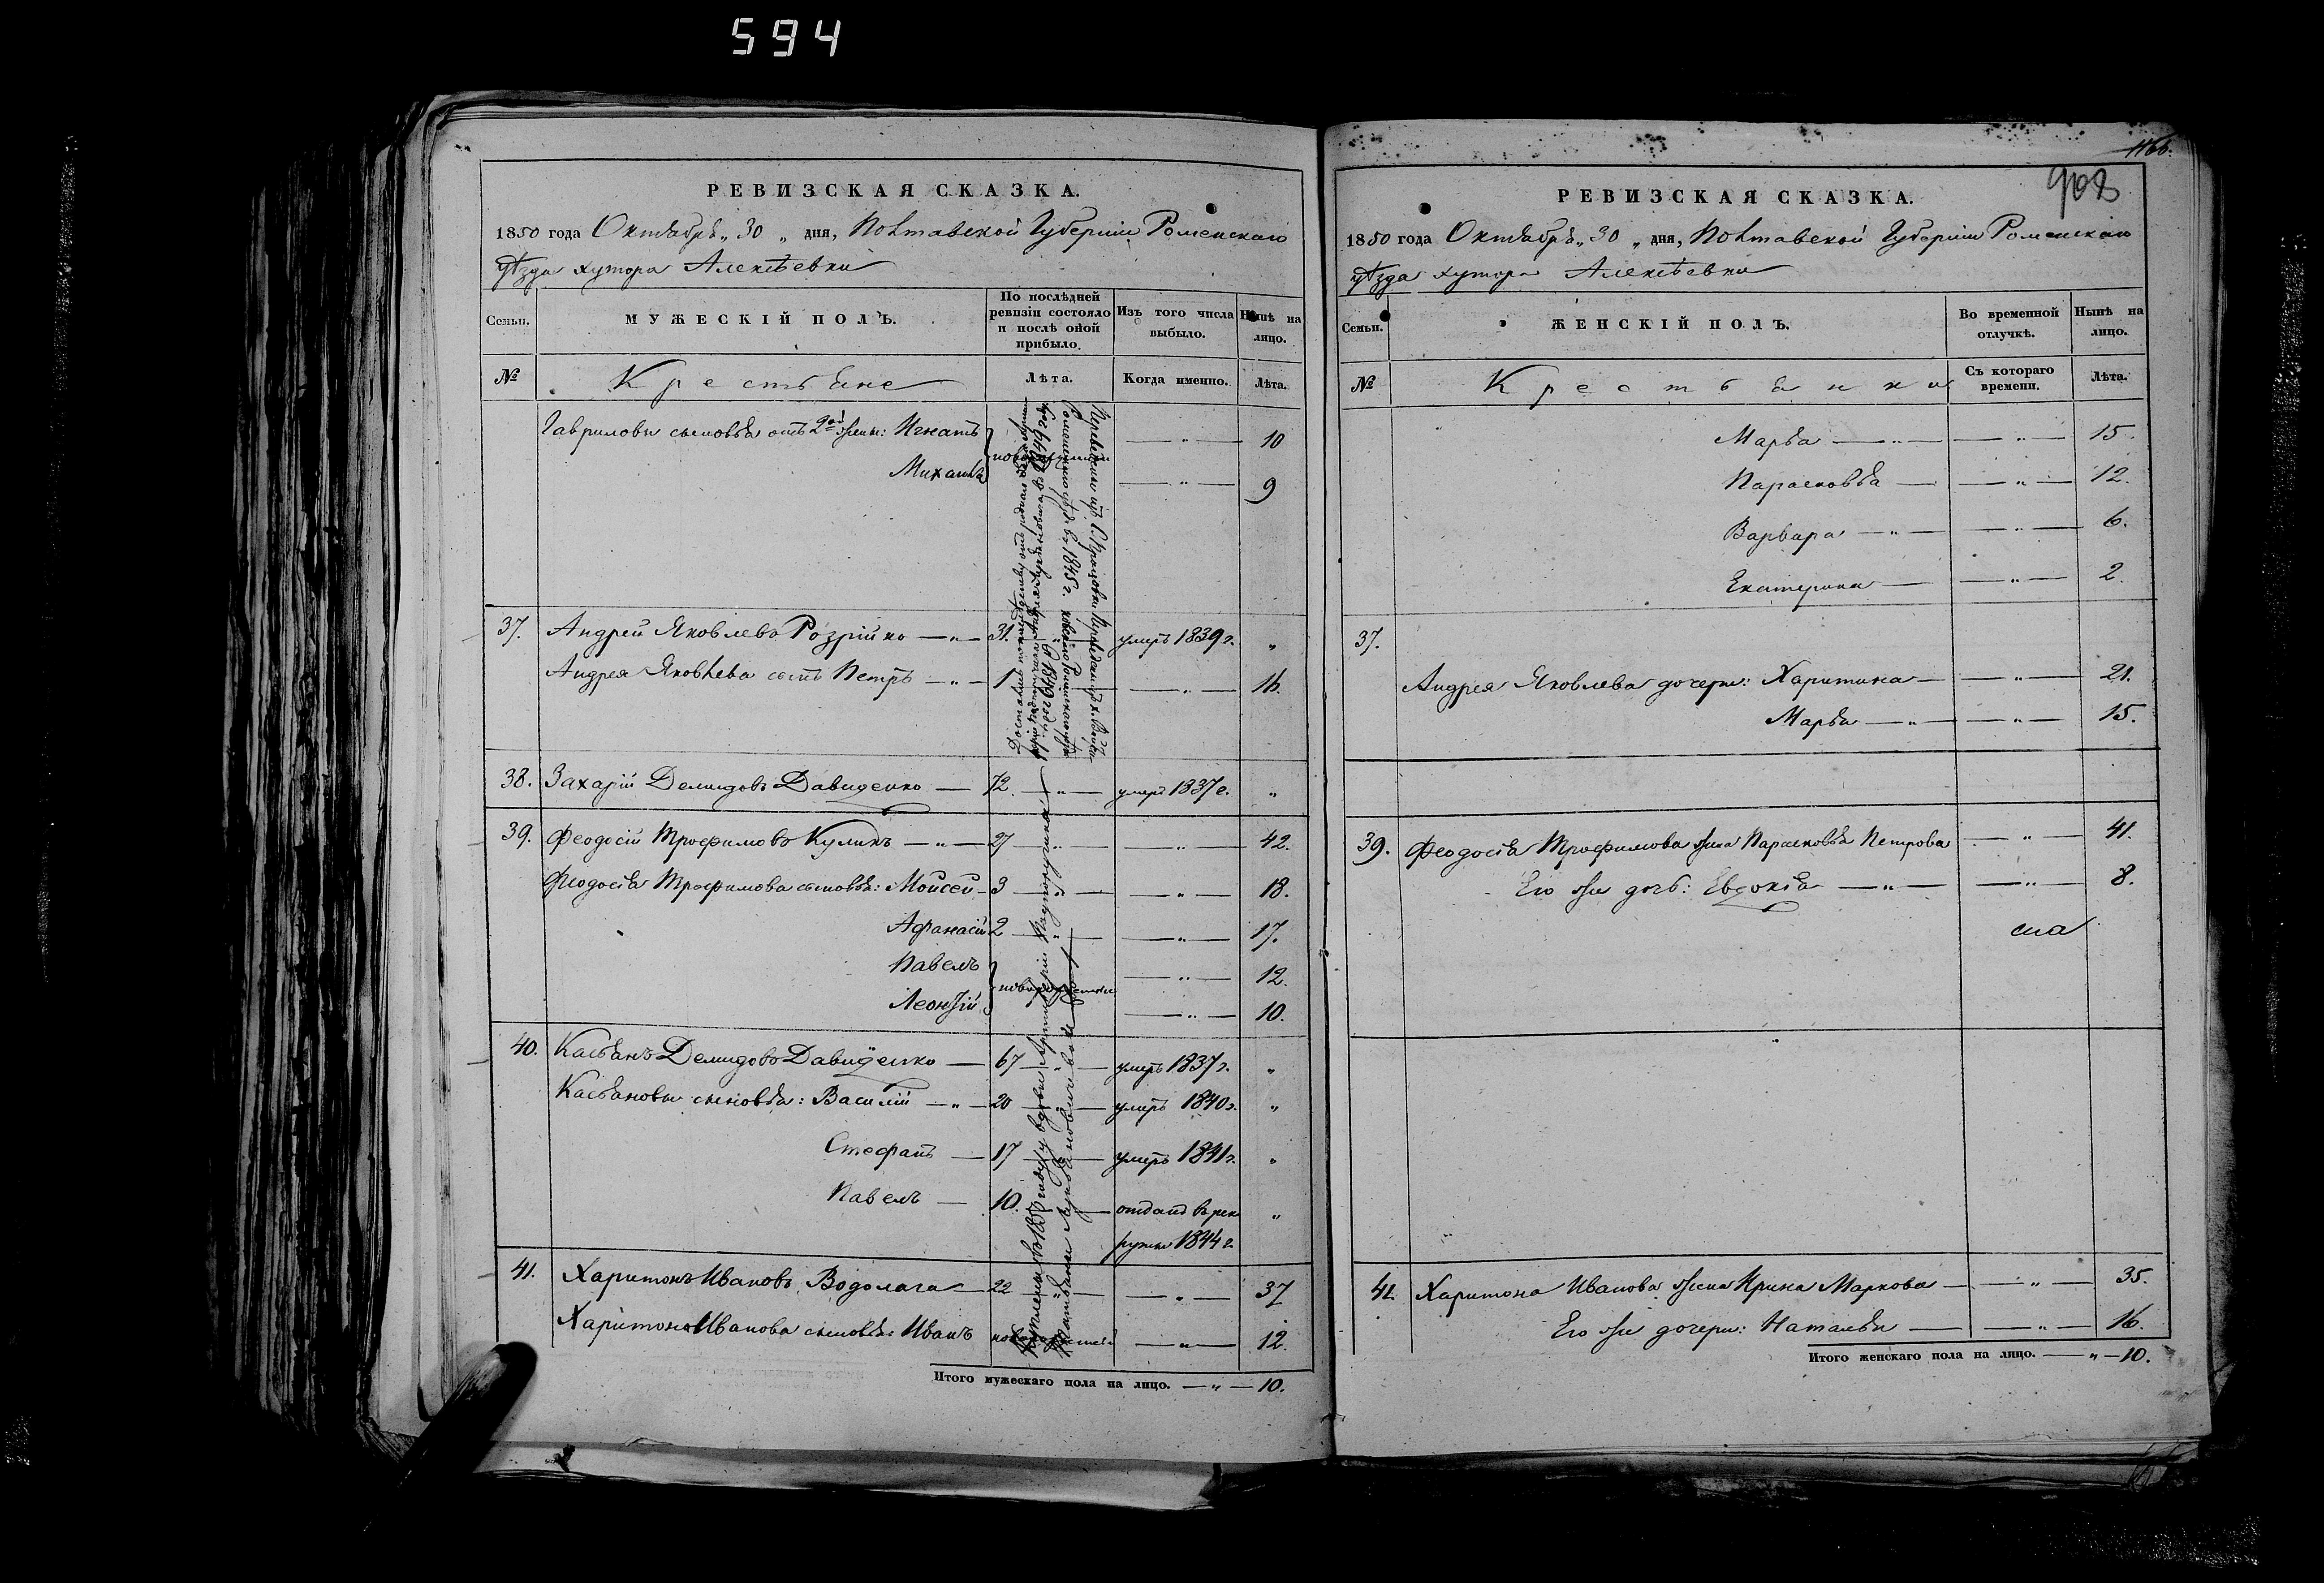 594
РЕВИЗСКАЯ СКАЗКА.
1850 года Октября „ 30 „ дня, Полтавской Губернии Роменскаго
уѣзда хутора Алексѣевки
Семьи.
МУЖЕСКІЙ ПОЛЪ.
По послѣдней ревизіи состояло и послѣ оной прибыло.
Изъ того числа выбыло.
Нынѣ на лицо.
№
Крестьяне
Лѣта.
Когда именно.
Лѣта.
Гавриловы сыновья отъ 2ой жены: Игнатъ — „ — 10
Михаилъ — „ — 9
37. Андрей Яковлевъ Розрійко — „ — 31. умеръ 1839 г. „
Андрея Яковлева сынъ Петръ — „ — 1 — „ — 16.
38. Захарій Демидовъ Давиденко — 72. — „ — умеръ 1837 г. „
39. Феодосій Трофимовъ Куликъ — „ — 27 — „ — — „ — 42.
Феодосія Трофимова сыновья: Мойсей — 3 — „ — — „ — 18.
Афанасій 2 — „ — — „ — 17.
Павелъ — „ — 12.
новорожденные
Леонтій — „ — 10.
40. Касьянъ Демидовъ Давиденко — 67 — „ — умеръ 1837 г. „
Касьяновы сыновья: Василій — „ — 20 умеръ 1840 г. „
Стефанъ — 17 умеръ 1841 г. „
Павелъ — 10. отданъ въ рек „
руты 1844 г.
41. Харитонъ Ивановъ Водолага — 22 — „ — — „ — 37
Харитона Иванова сыновья: Иванъ — „ — 12.
Итого мужескаго пола на лицо. — „ — 10.
1166.
908
РЕВИЗСКАЯ СКАЗКА.
1850 года Октября „ 30 „ дня, Полтавской Губернии Роменскаго
уѣзда хутора Алексѣевки
Семьи.
ЖЕНСКІЙ ПОЛЪ.
Во временной отлучкѣ.
Нынѣ на лицо.
№
Крестьянки
Съ котораго времени.
Лѣта.
Марья — „ — — „ — 15.
Парасковья — — „ — 12.
Варвара — „ — — „ — 6.
Екатерина — — „ — 2.
37.
Андрея Яковлева дочери: Харитина — — „ — 21.
Марья — „ — — „ — 15.
39. Феодосія Трофимова жена Парасковья Петрова — „ — 41.
Его же дочь: Евдокія — „ — — „ — 8.
41. Харитона Иванова жена Ирина Маркова — — „ — 35.
Его же дочери: Наталья — — „ — 16.
Итого женскаго пола на лицо. — „ — 10.